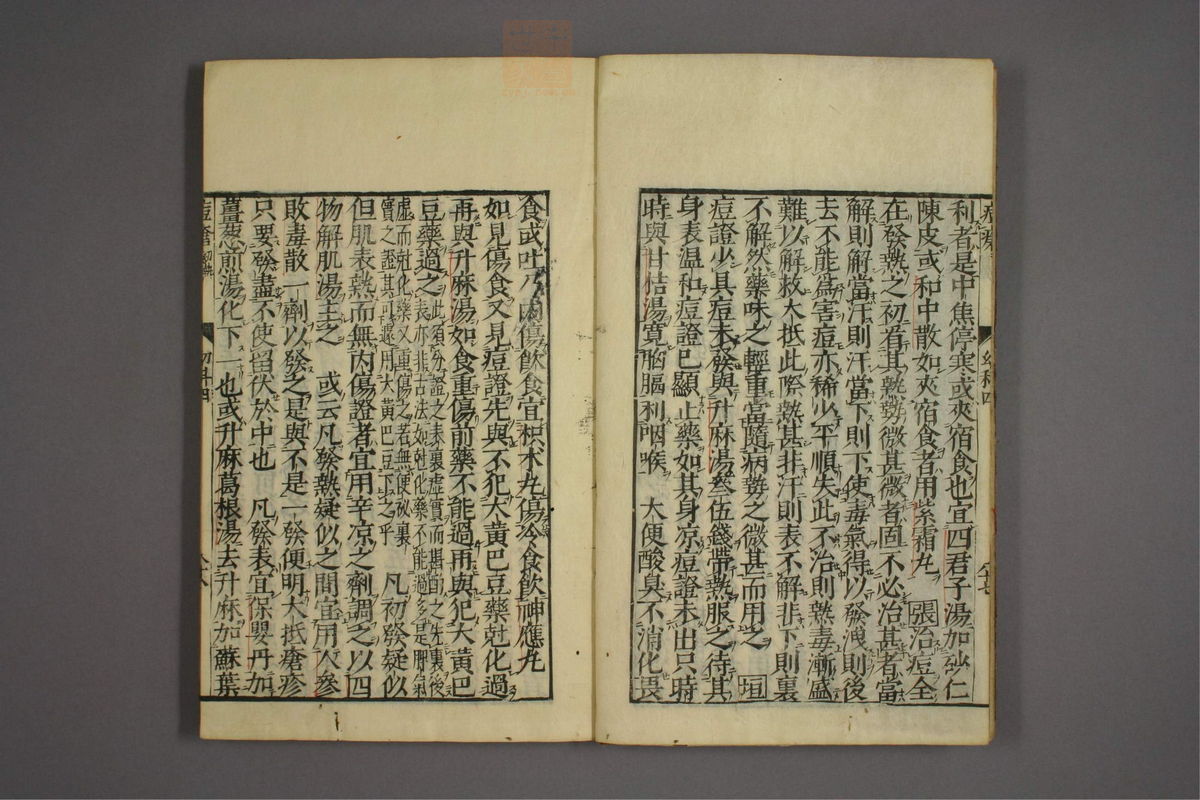 利者是中焦停寒或夾宿食也宜四君子湯加砂仁
陳皮或和中散如夾宿食者用紫霜丸 張治痘全
在發熱之初看其熱勢微甚微者固不必治甚者當
解則解當汗則汗當下則下使毒氣得以發洩則後
去不能為害痘亦稀少平順失此不治則熱毒漸盛
難以解救大抵此際熱甚非汗則表不解非下則裏
不解然藥味之輕重當隨病勢之微甚而用之 垣
痘證少具痘未發與升麻湯叄伍錢帶熱服之待其
身表温和痘證已顯止藥如其身凉痘證未出只時
時與甘桔湯寬胸膈利咽喉 大便酸臭不消化畏
食或吐乃內傷飲食宜枳朮丸傷冷食飲神應丸
如見傷食又見痘證先與不犯大黃巴豆藥尅化過
再與升麻湯如食重傷前藥不能過再與犯大黃巴
豆藥過之
此須分證之表裏虛實而斟酌之先裏後
表亦非古法如尅化藥不能過多是脾氣
虛而尅化藥又重傷之者無便秘裏
實之證其可遽用大黃巴豆下之乎
凡初發疑似
但肌表熱而無內傷證者宜用辛凉之劑調之以四
物解肌湯主之 或云凡發熱疑似之間宜用人參
敗毒散一劑以發之是與不是一發便明大抵瘡疹
只要發盡不使留伏於中也 凡發表宜保嬰丹加
薑葱煎湯化下一也或升麻葛根湯去升麻加蘇葉
幼科四